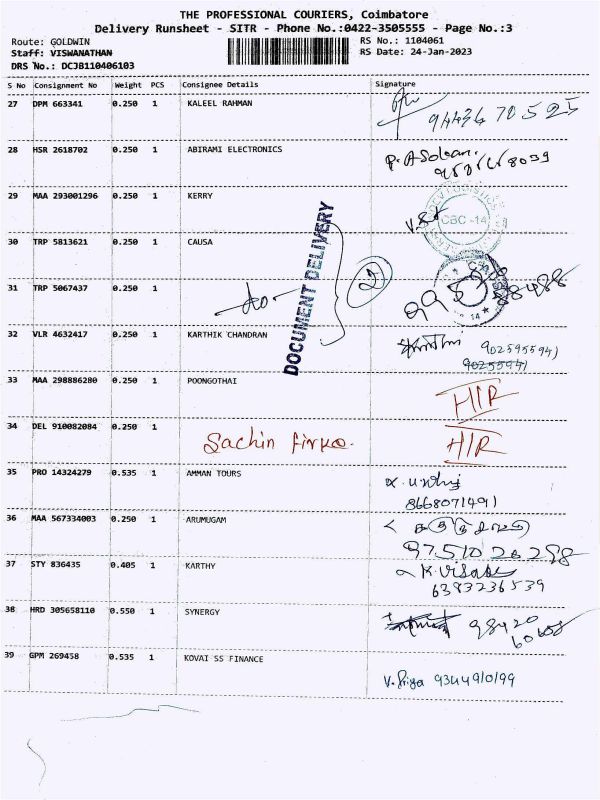 THE PROFESSIONAL COURIERS, Coimbatore
Delivery Runsheet - SITR - Phone No.:0422-3505555 - Page No.:3
Route: GOLDWIN RS No.: 1104061
Staff: VISWANATHAN RS Date: 24-Jan-2023
DRS No.: DCJB110406103
S No Consignment No Weight PCS Consignee Details Signature
27 DPM 663341 0.250 1 KALEEL RAHMAN
9443470525
28 HSR 2618702 0.250 1 ABIRAMI ELECTRONICS
29 MAA 293001296 0.250 1 KERRY
CBC -14
30 TRP 5813621 0.250 1 CAUSA
DOCUMENT DELIVERY
2
31 TRP 5067437 0.250 1
14
32 VLR 4632417 0.250 1 KARTHIK CHANDRAN
9025955941
90255941
33 MAA 298886280 0.250 1 POONGOTHAI
HIR
34 DEL 910082084 0.250 1
Sachin HIR
35 PRO 14324279 0.535 1 AMMAN TOURS
8668071491
36 MAA 567334003 0.250 1 ARUMUGAM
9751026298
37 STY 836435 0.405 1 KARTHY
6383236539
38 HRD 305658110 0.550 1 SYNERGY
98420
60608
39 GPM 269458 0.535 1 KOVAI SS FINANCE
V. Priya 9344910199